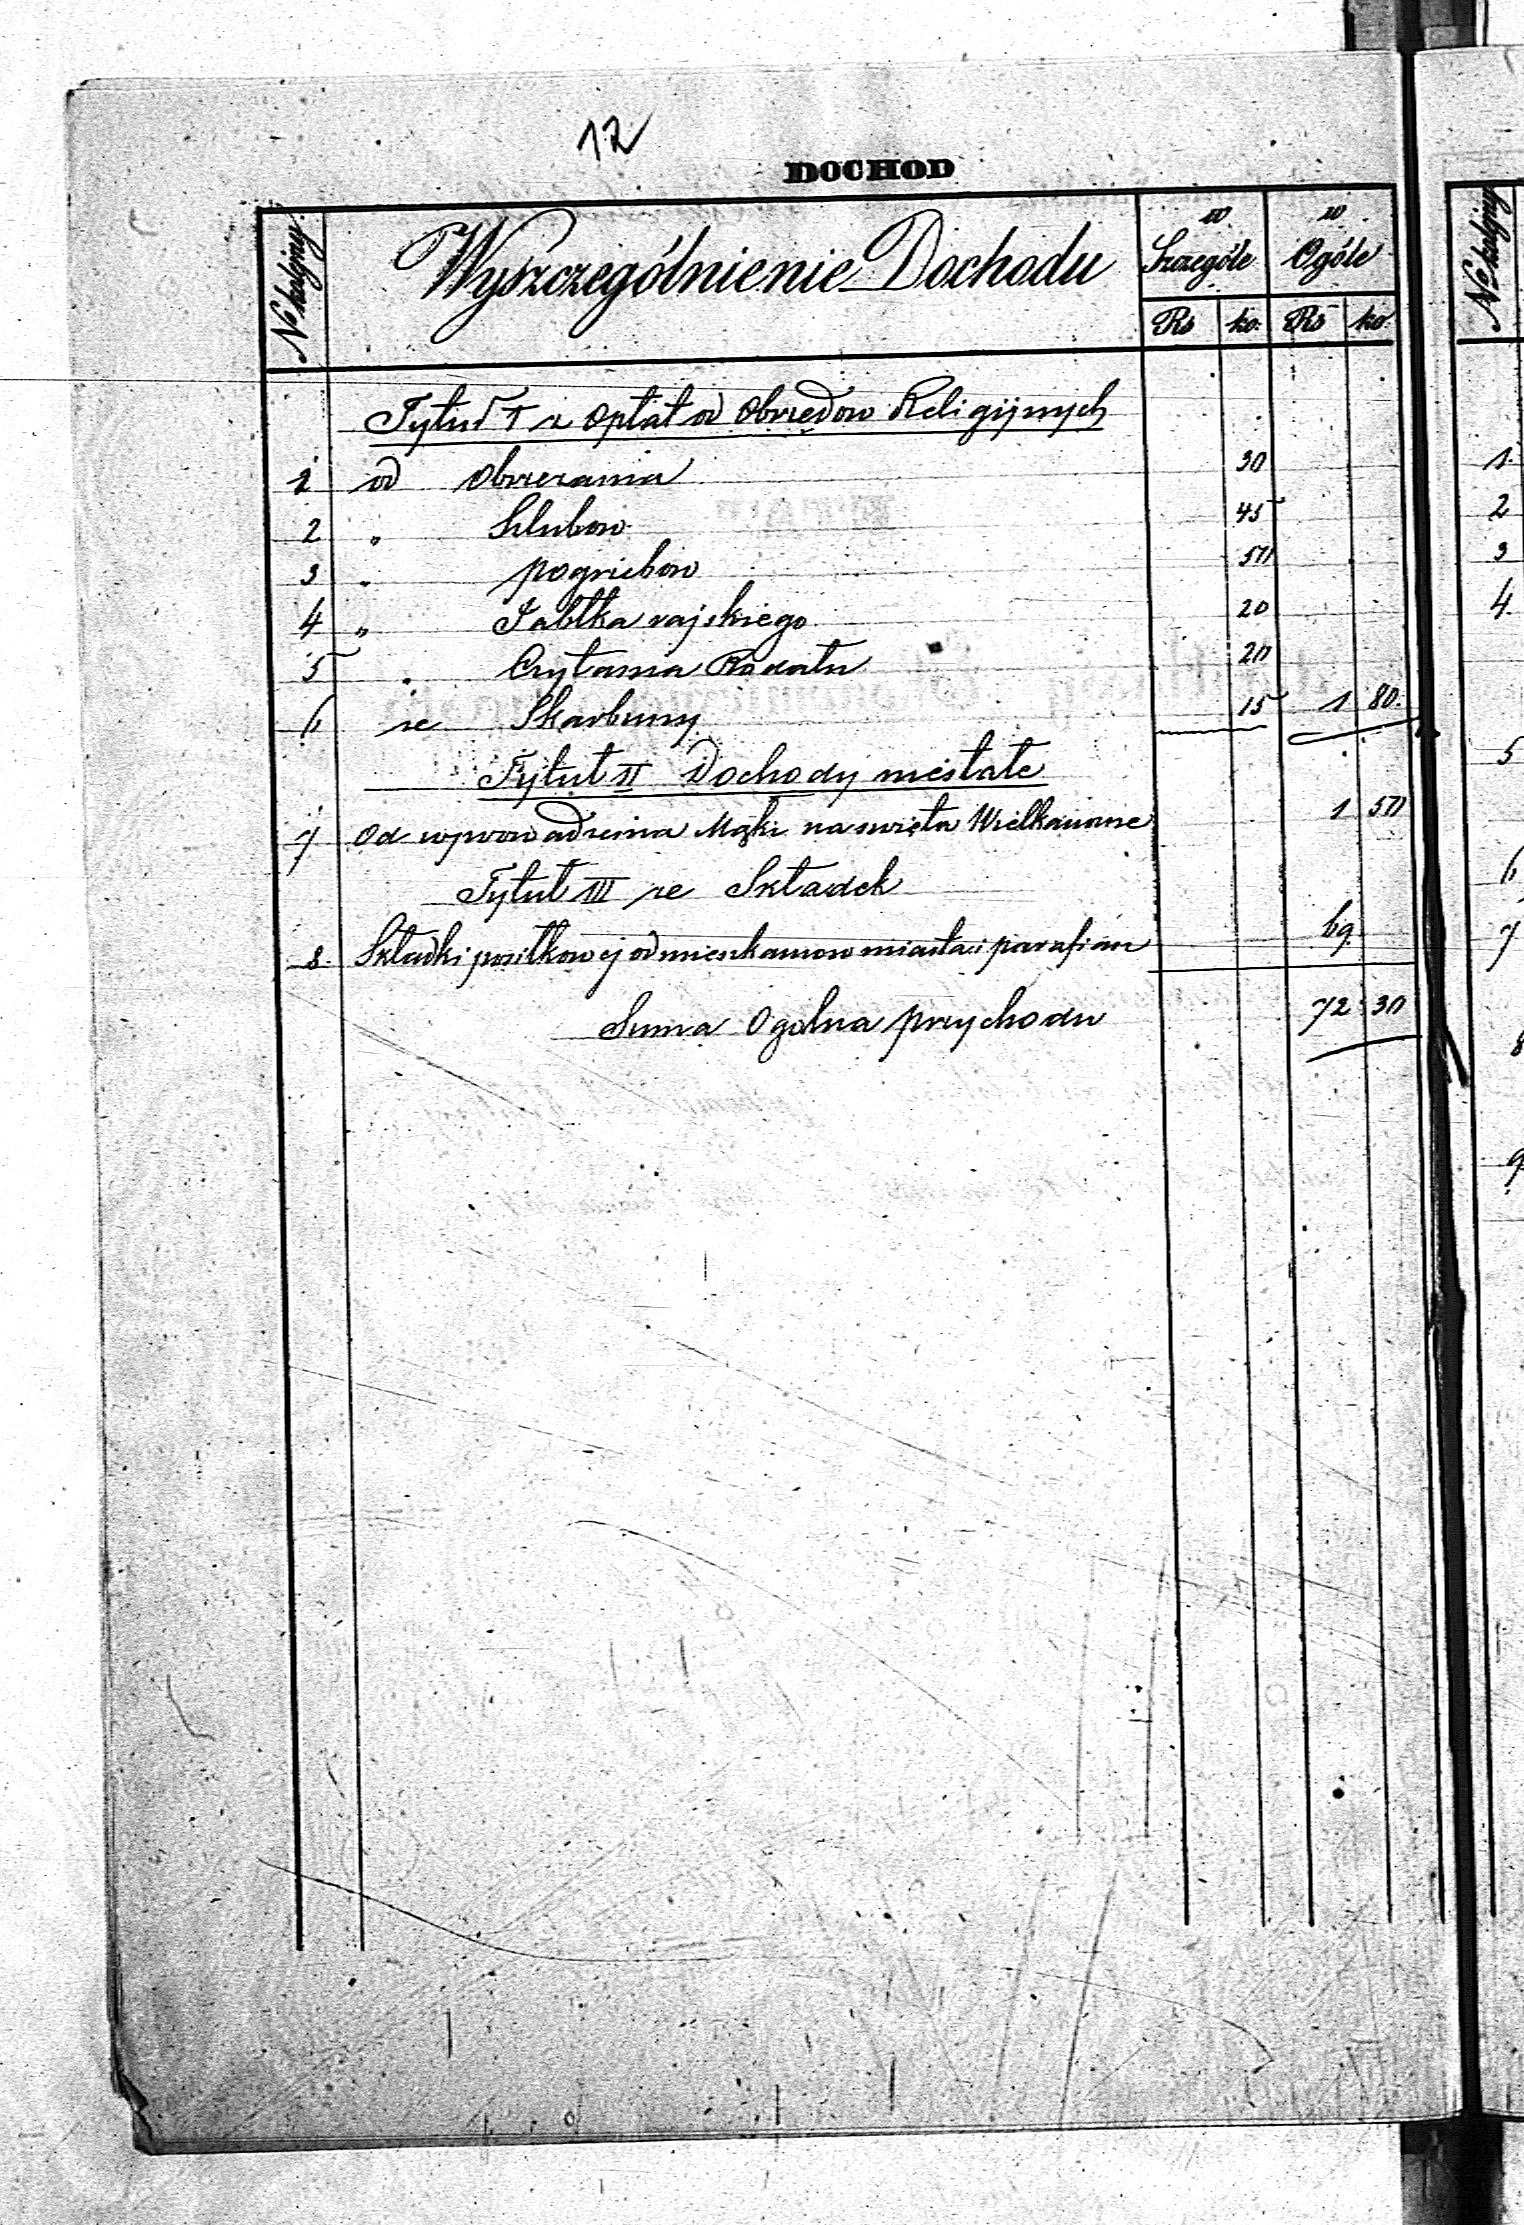 12
DOCHOD
No kolejny
Wyszczególnienie Dochodu
w Szczególe
w Ogóle
Rs ko. Rs ko.
Tytuł I z Opłat od Obrzedow Religijnych
1 od Obrzezania 30
2 " Szlubow 45
3 " pogrzebow 50
4 " Jabłka rajskiego 20
5 " Czytania Rodału 20
6 ze Skarbony 15 1 80.
Tytuł II Dochody niestałe
7 Od wprowadzenia Mąki na święta Wielkanocne 1 50
Tytuł III ze Składek
8. Składki posiłkowej od mieszkancow miasta i parafian 69.
Suma Ogolna przychodu 72 30
No kolejny
1.
2
3
4
5
6
7
8
9